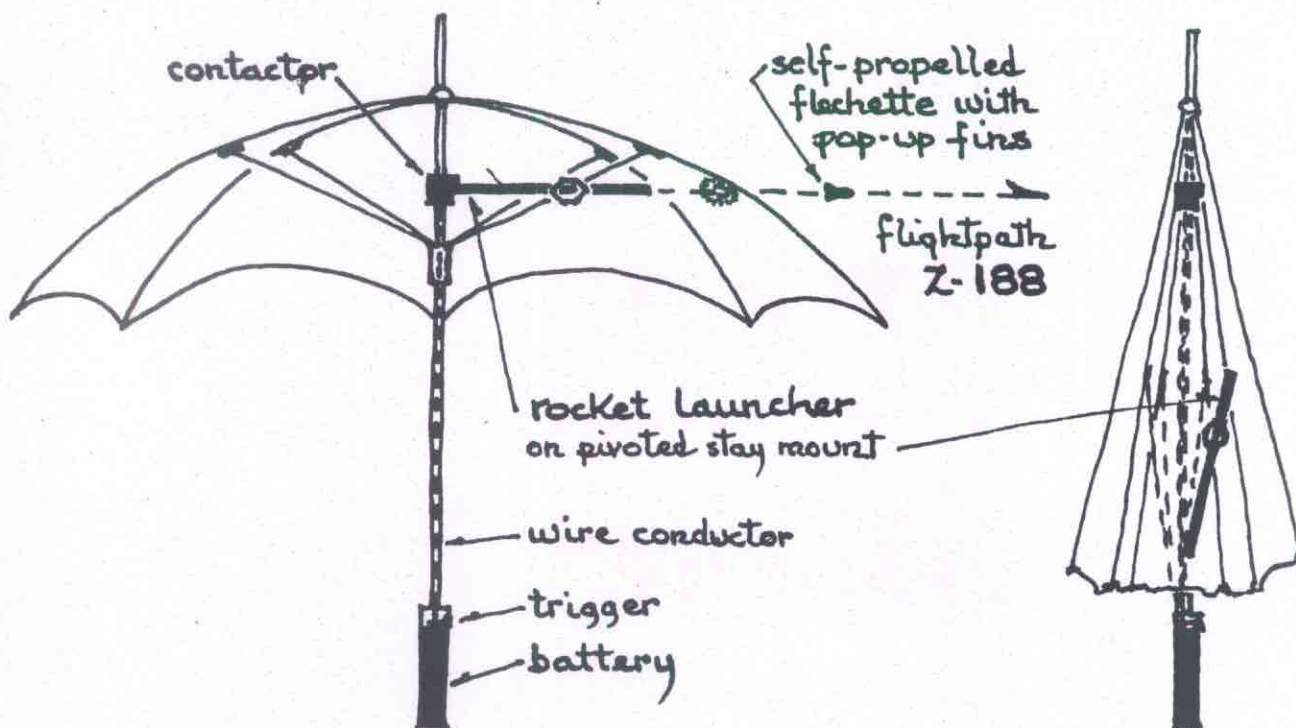 contactor
self-propelled
flechette with
pop-up fins
flightpath
Z-188
rocket launcher
on pivoted stay mount
wire conductor
trigger
battery